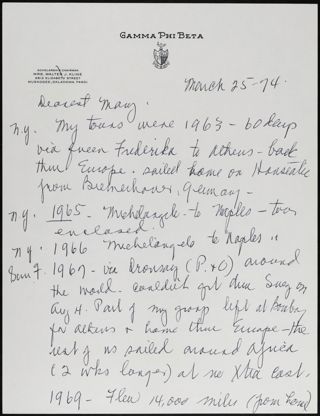 GAMMA PHI BETA
SCHOLARSHIP CHAIRMAN
MRS. WALTER J. KLINE
MUSKOGEE, OKLAHOMA 74401
March 25-74.
Dearest Mary
N.Y. My tours were 1963 - 60 days
via Queen Frederika to Athens - back
thru Europe. sailed home on Hanseatic
from Bremerhaven, Germany -
N.Y. 1965 - Michelangelo to Naples - tour
enclosed.
N.Y. 1966 Michelangelo to Naples "
1967 - via Oronsay (P. & O) around
the world. couldn't get thru Suez on
Aug 4. Part of my group left at Bombay
for Athens & home thru Europe - the
rest of us sailed around Africa
(2 wks longer) at no Xtra cost.
1969 - Flew 14,000 miles (from home)